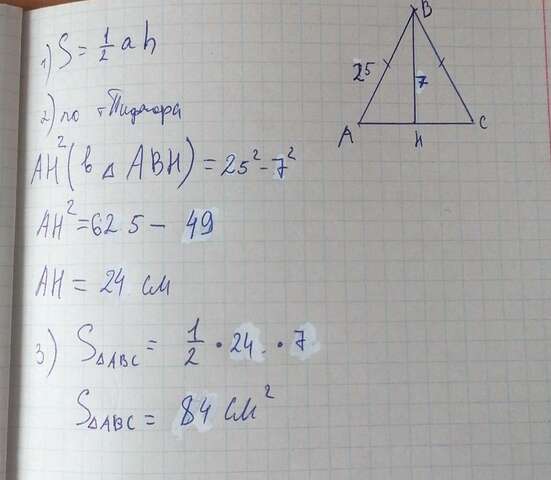 1) S = 1/2 a h
2) по т Пифагора
AH² (в △ ABH) = 25² - 7²
AH² = 625 - 49
AH = 24 см
3) S△ABC = 1/2 • 24 • 7
S△ABC = 84 см²
B
25
7
A
H
C